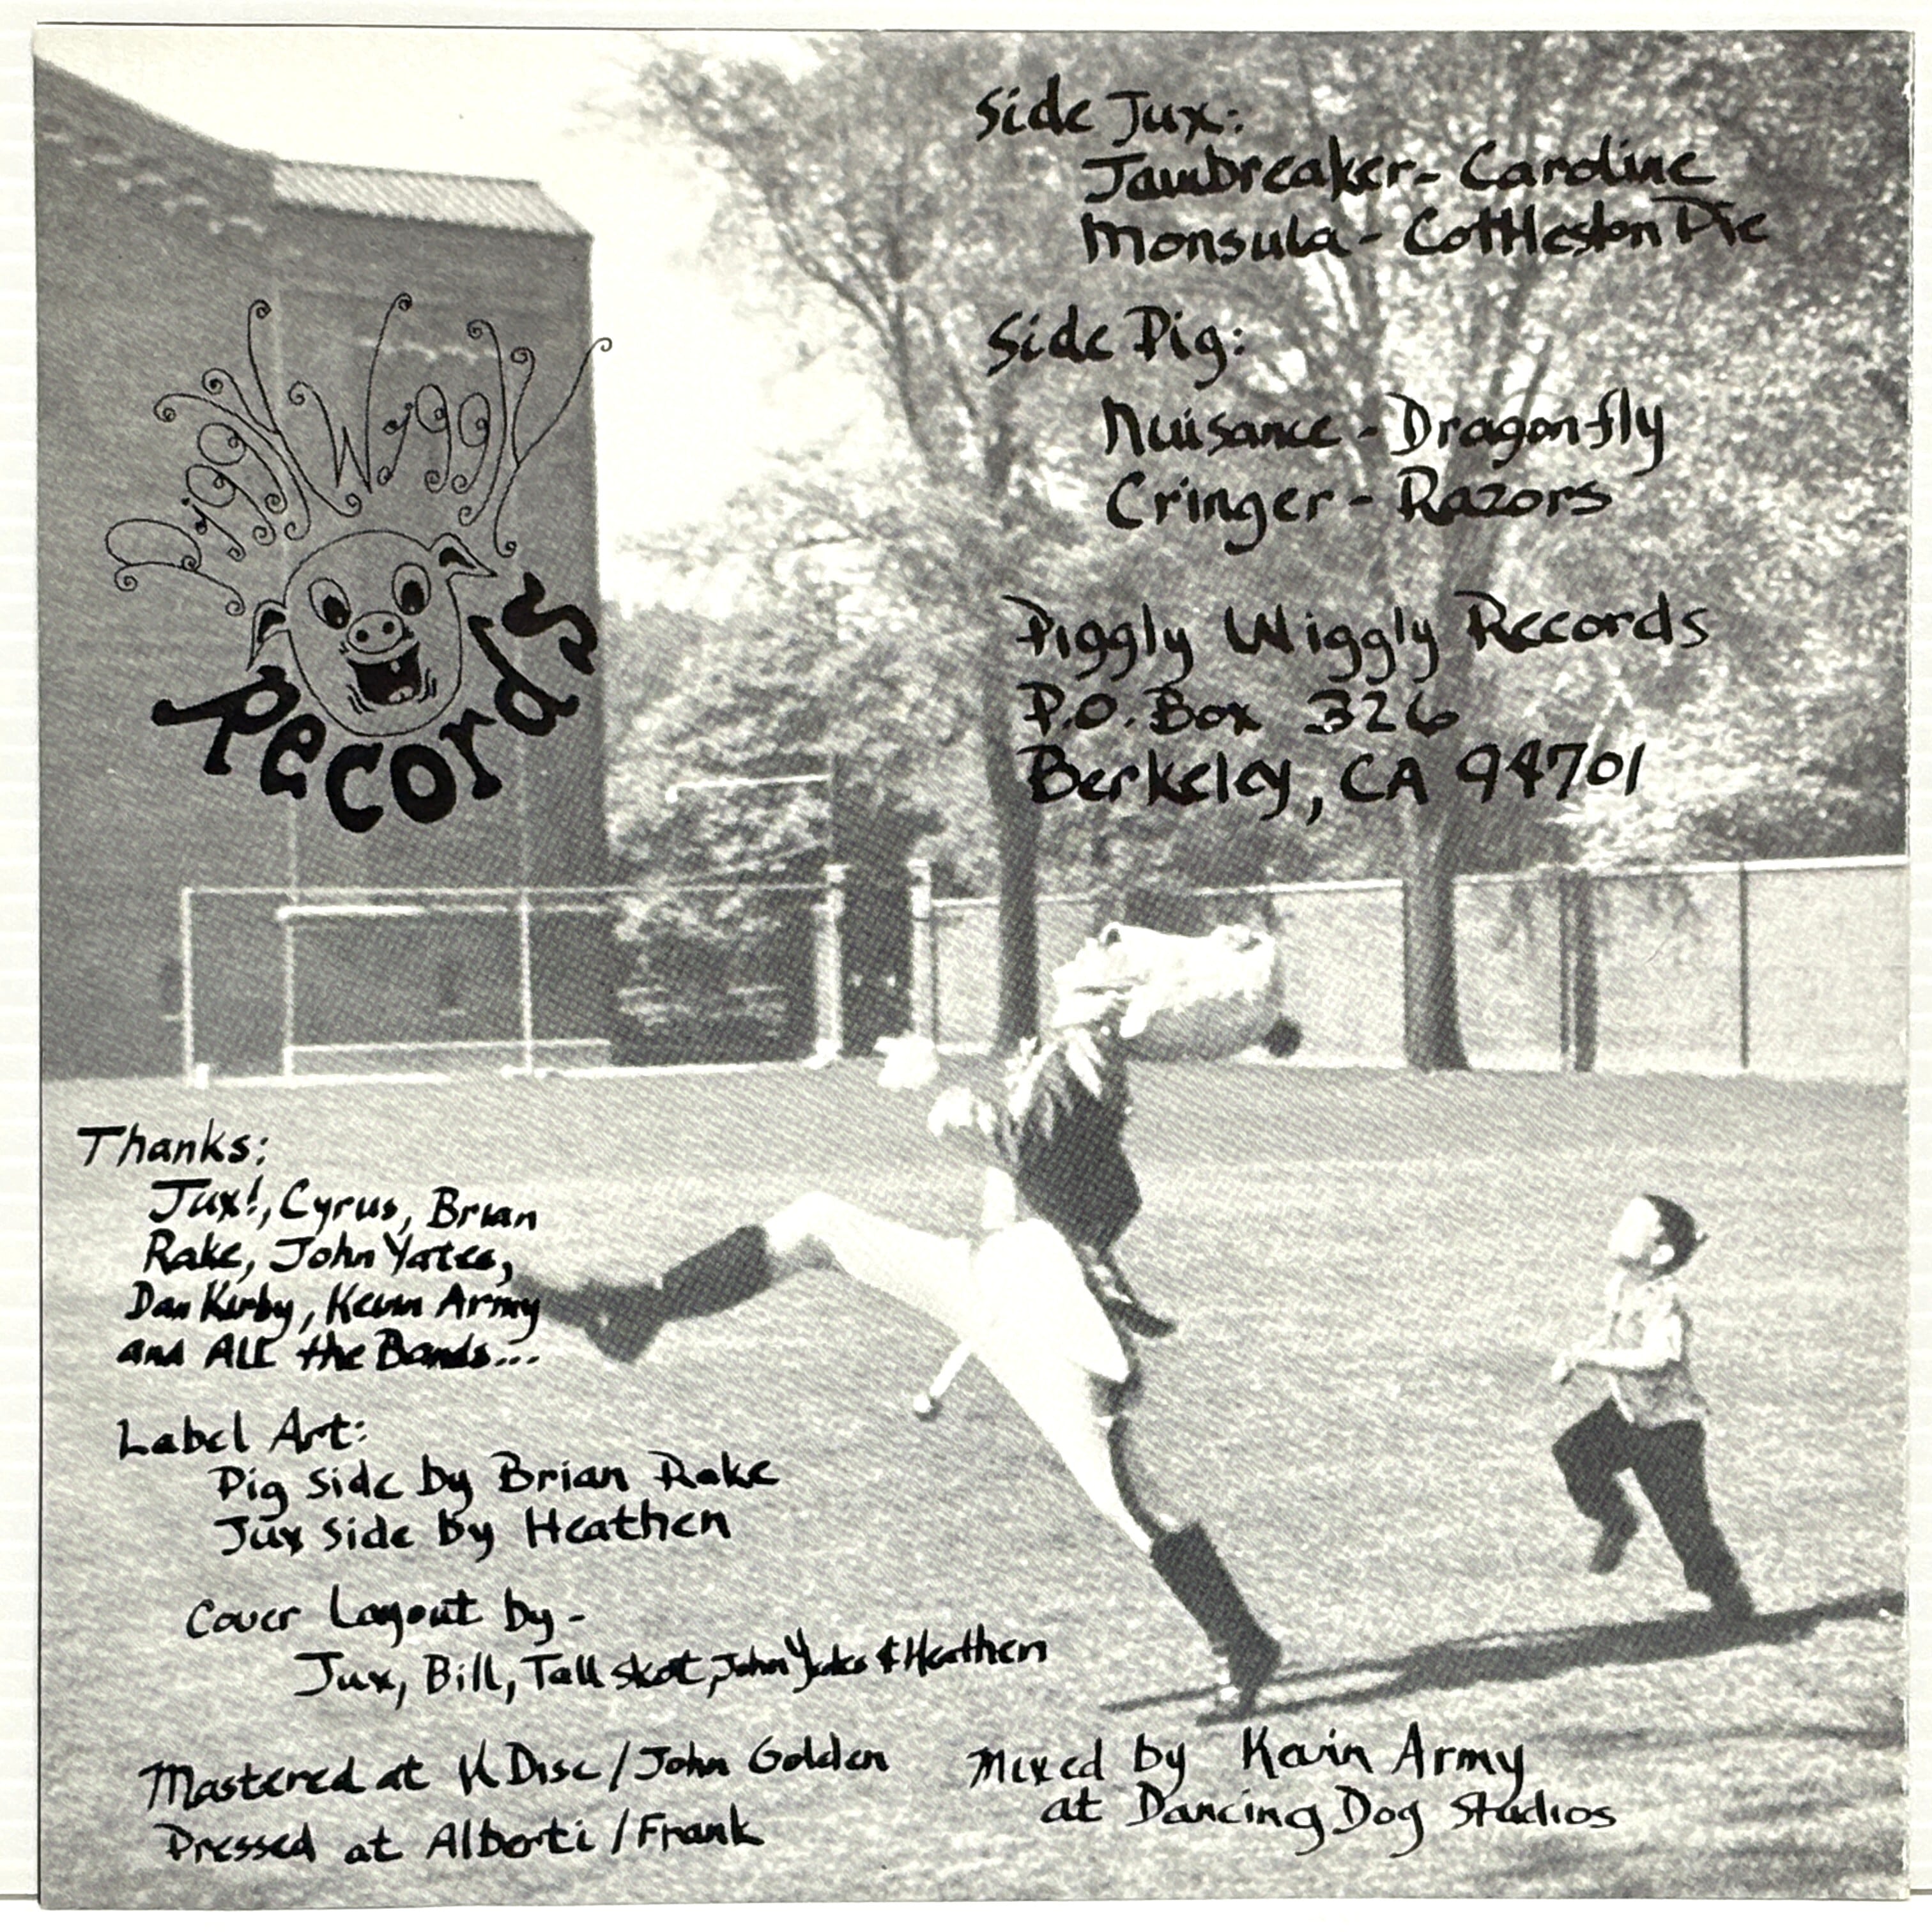 Side Jux:
Jawbreaker - Caroline
Monsula - Cottleston Pie
Side Pig:
Nuisance - Dragonfly
Cringer - Razors
Piggly Wiggly Records
P.O. Box 326
Berkeley, CA 94701
Piggly Wiggly
Records
Thanks:
Jux!, Cyrus, Brian
Rake, John Yates,
Dan Kirby, Kevin Army
and ALL the Bands...
Label Art:
Pig Side by Brian Rake
Jux Side by Heathen
Cover Layout by -
Jux, Bill, Tall Skot, John Yates & Heathen
Mastered at K Disc / John Golden
Pressed at Alberti / Frank
Mixed by Kevin Army
at Dancing Dog Studios